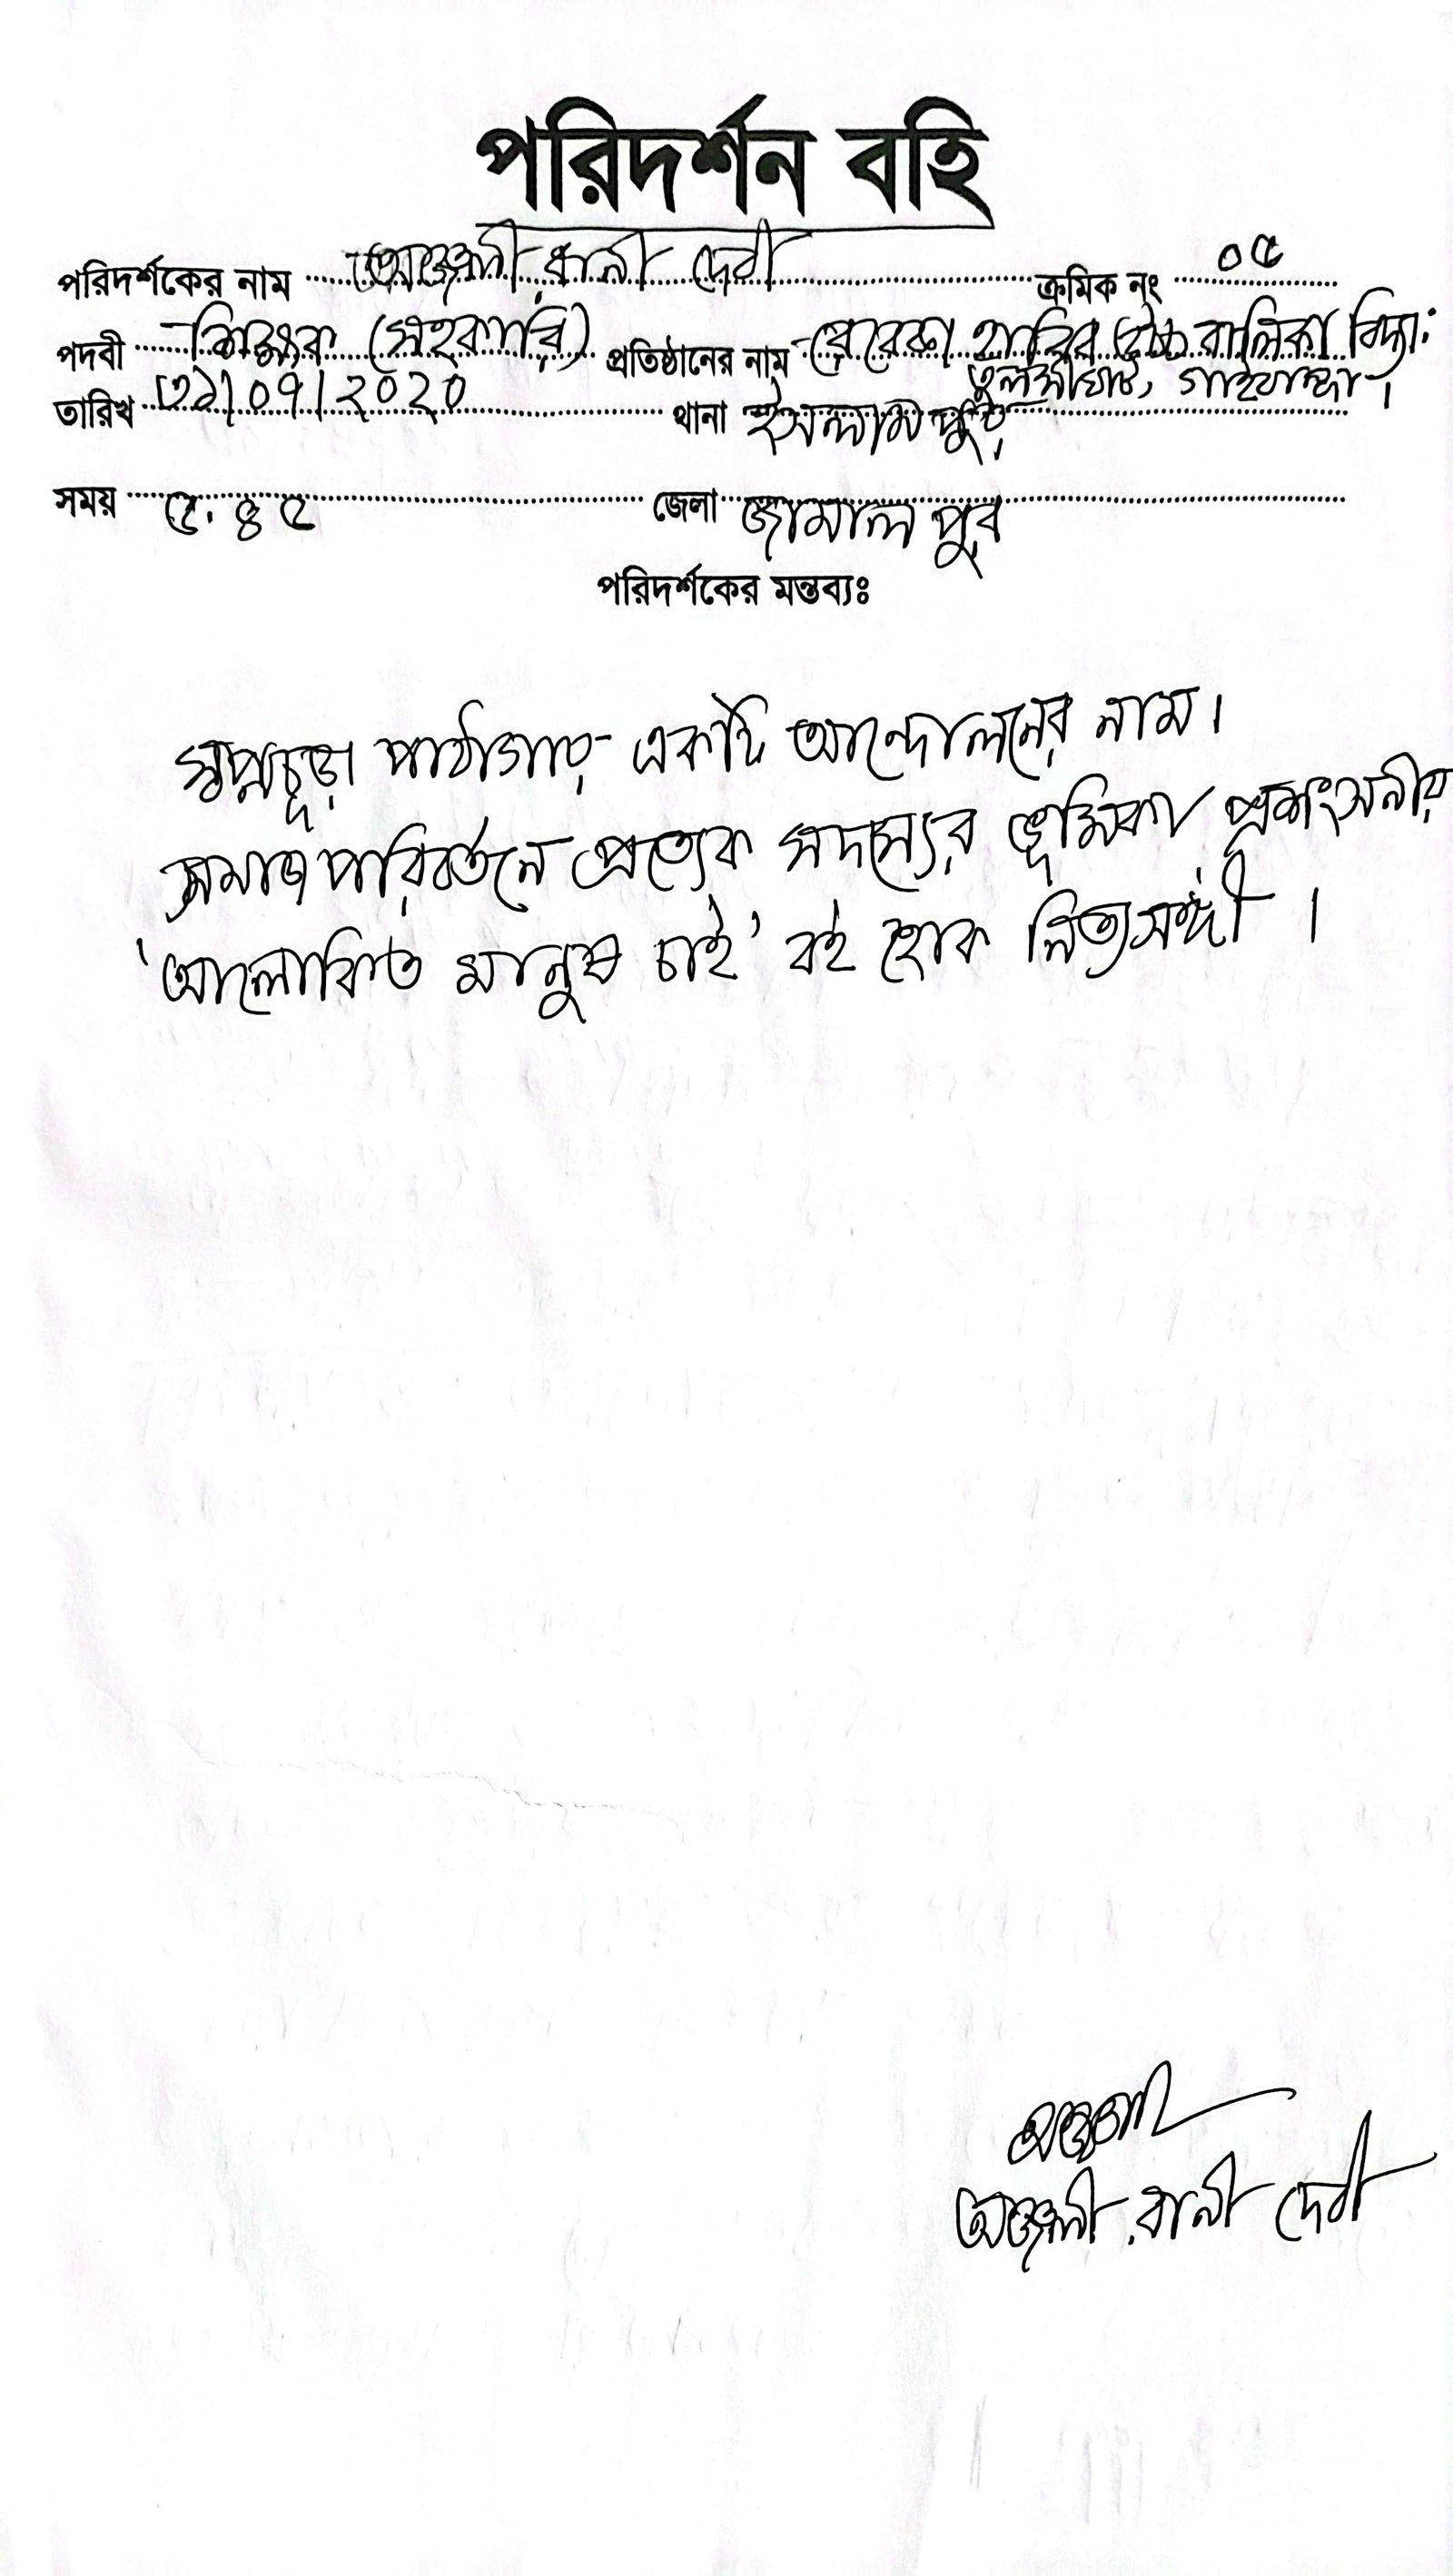 পরিদর্শন বহি
পরিদর্শকের নাম অঞ্জলী রানী দেবী ক্রমিক নং ০৫
পদবী শিক্ষক (সহকারি) প্রতিষ্ঠানের নাম হাবিব বালিকা বিদ্যা:
তুলসীঘাট, গাইবান্ধা।
তারিখ ৩১/০৭/২০২০ থানা ইসলামপুর
সময় ৫.৪৫ জেলা জামালপুর
পরিদর্শকের মন্তব্যঃ
স্বপ্নচূড়া পাঠাগার একটি আন্দোলনের নাম।
সমাজ পরিবর্তনে প্রত্যেক সদস্যের ভূমিকা প্রশংসনীয়
'আলোকিত মানুষ চাই' বই হোক নিত্যসঙ্গী।
অঞ্জলী
অঞ্জলী রানী দেবী